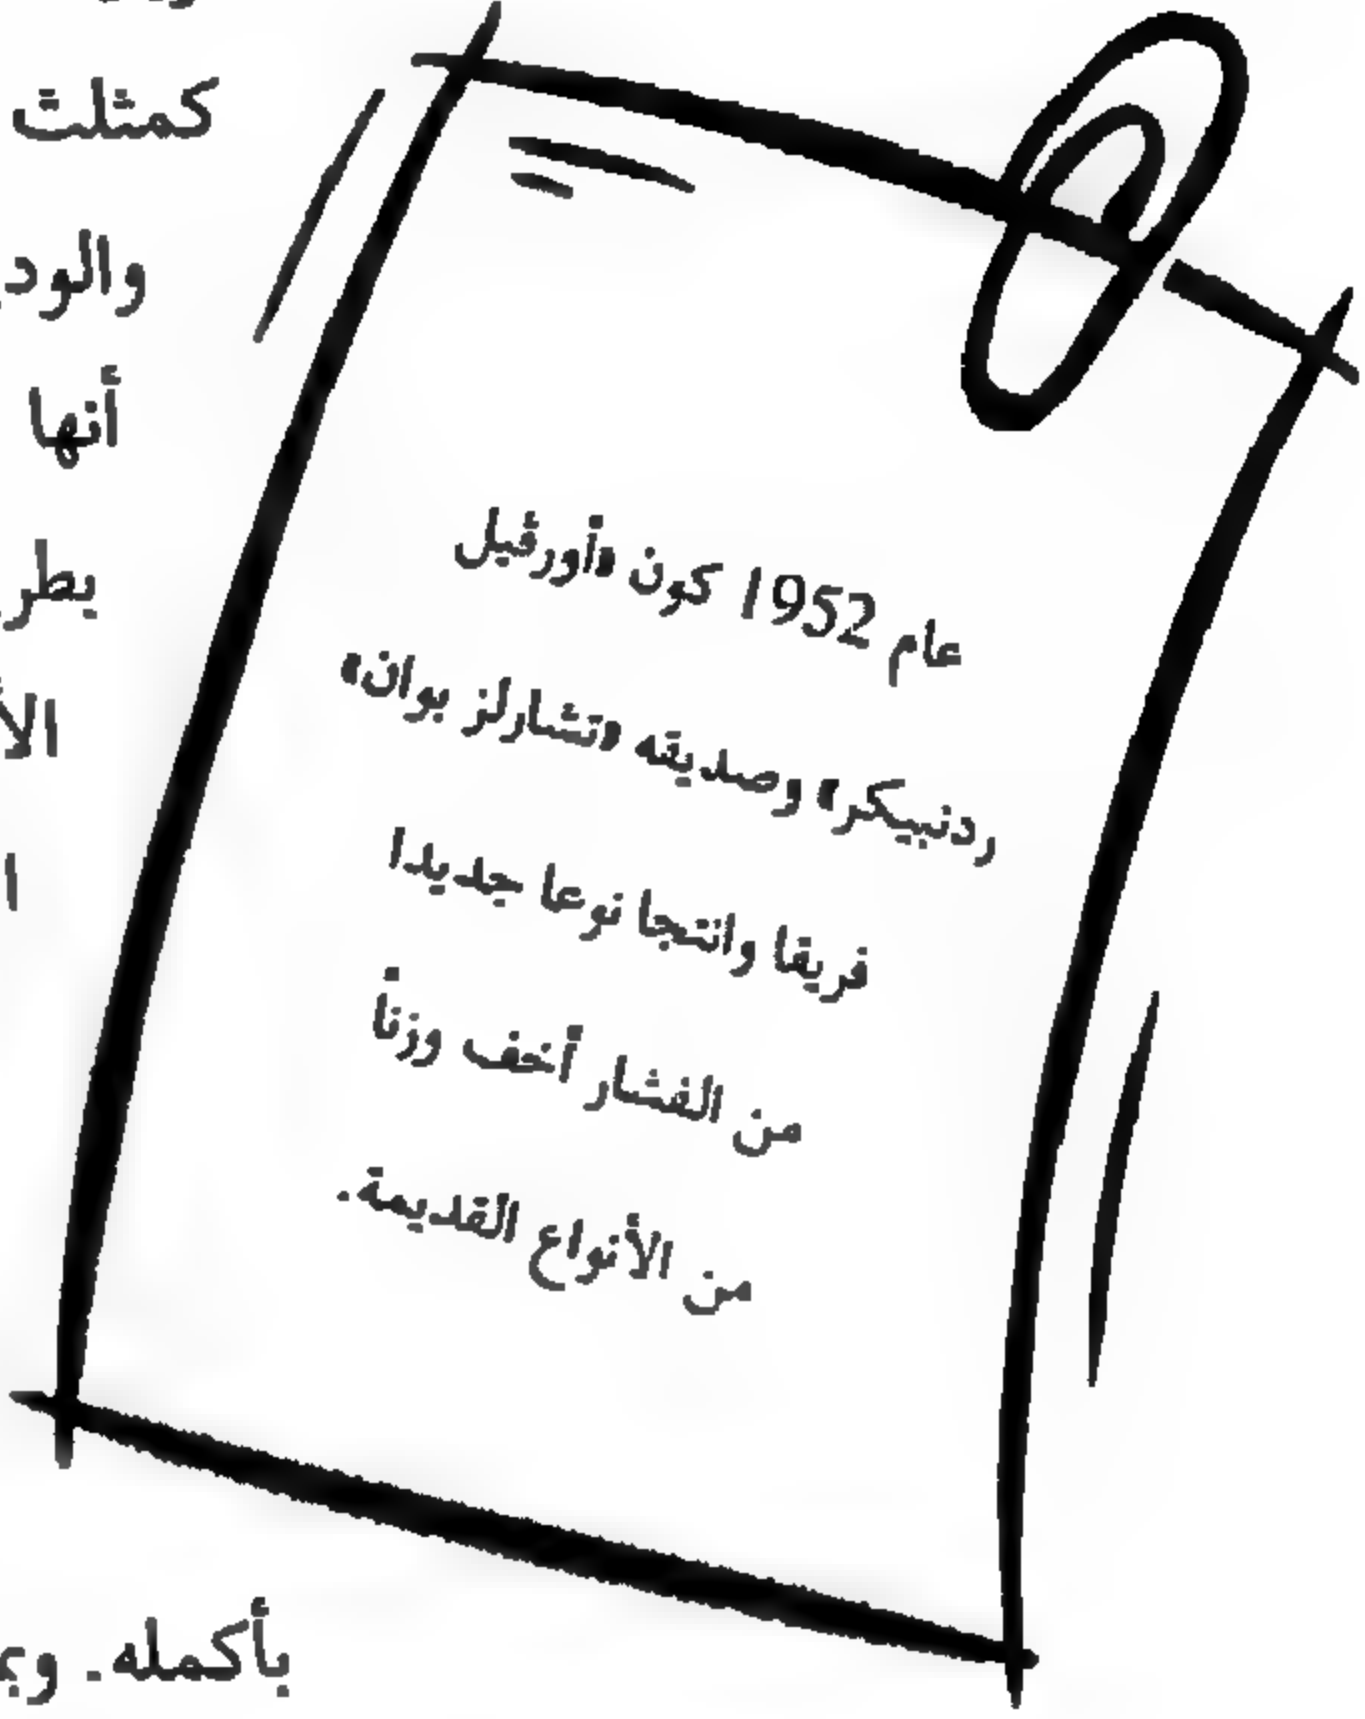 كمثلث
أنها
عام 1952 كون «أورڤيل
ردنبيكر» وصديقه «تشارلز بوان»
فريقا وانتجا نوعا جديدا
من الفشار أخف وزنأ
من الأنواع القديمة.
بأكمله.